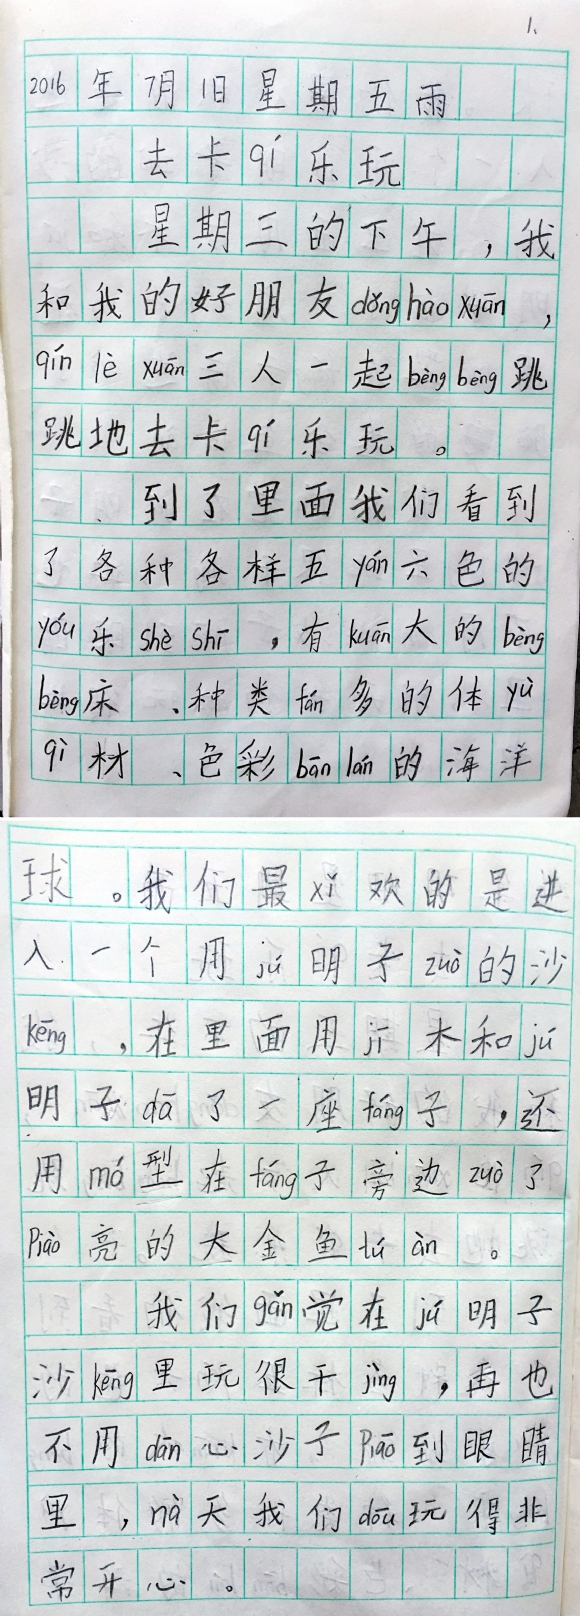 1.
2016年7月1日星期五雨
去卡qí乐玩
星期三的下午，我
和我的好朋友dǒng hào xuān，
qín lè xuān三人一起bèng bèng跳
跳地去卡qí乐玩。
到了里面我们看到
了各种各样五yán六色的
yóu乐shè shī，有kuān大的bèng
bèng床、种类fán多的体yù
qì材、色彩bān lán的海洋
球。我们最xǐ欢的是进
入一个用jú明子zuò的沙
kēng，在里面用jī木和jú
明子dā了一座fáng子，还
用mó型在fáng子旁边zuò了
Piào亮的大金鱼tú àn。
我们gǎn觉在jú明子
沙kēng里玩很干jìng，再也
不用dān心沙子Piāo到眼睛
里，nà天我们dōu玩得非
常开心。